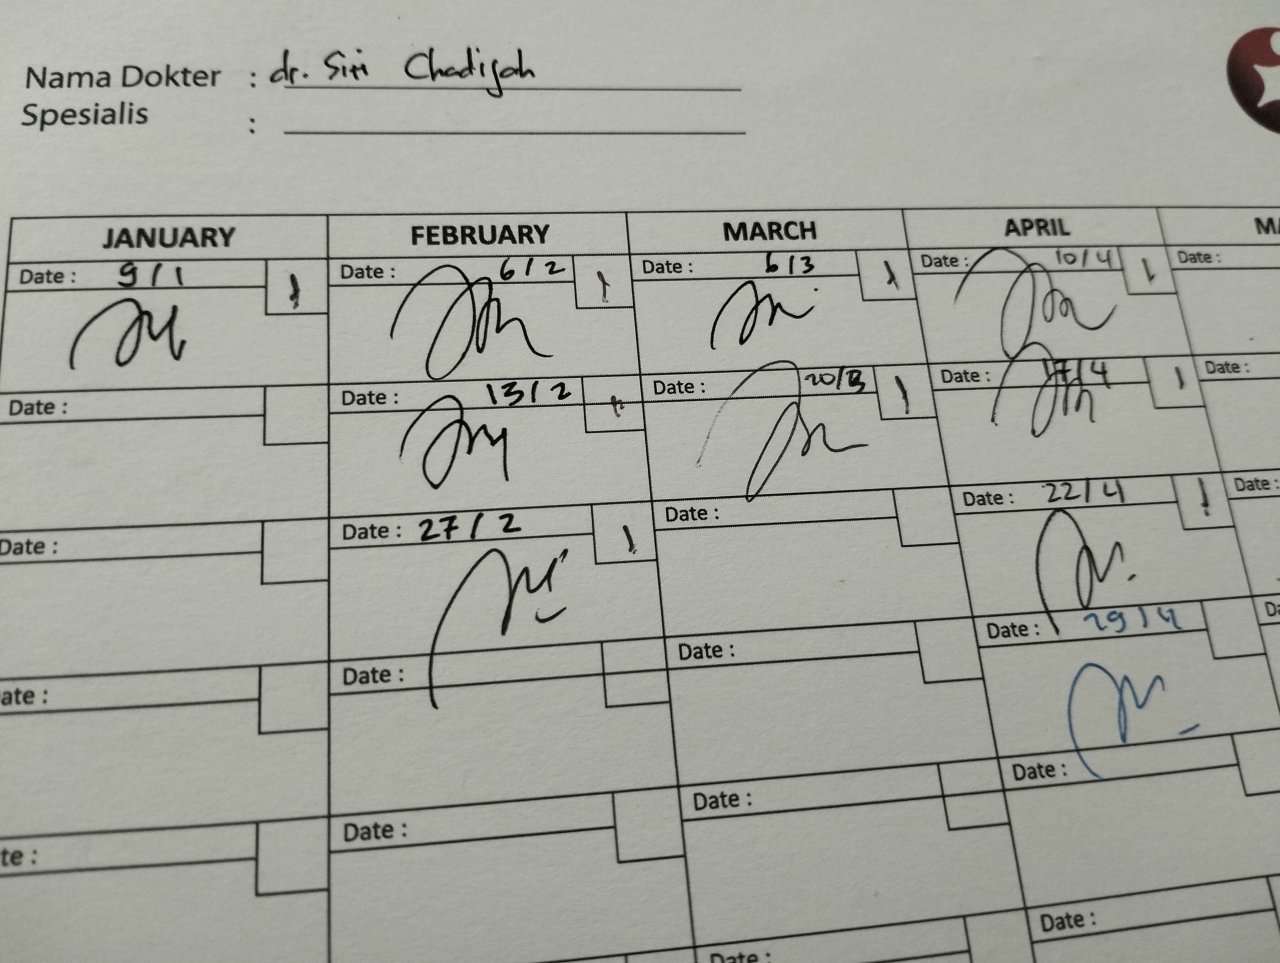 Nama Dokter : dr. Siti Chadijah
Spesialis :
JANUARY FEBRUARY MARCH APRIL
Date : 9/1 Date : 6/2 Date : 6/3 Date : 10/4 Date :
Date : Date : 13/2 Date : 20/3 Date : 17/4 Date :
Date : Date : 27/2 Date : Date : 22/4 Date :
ate : Date : Date : Date : 29/4
te : Date : Date : Date :
Date : Date :